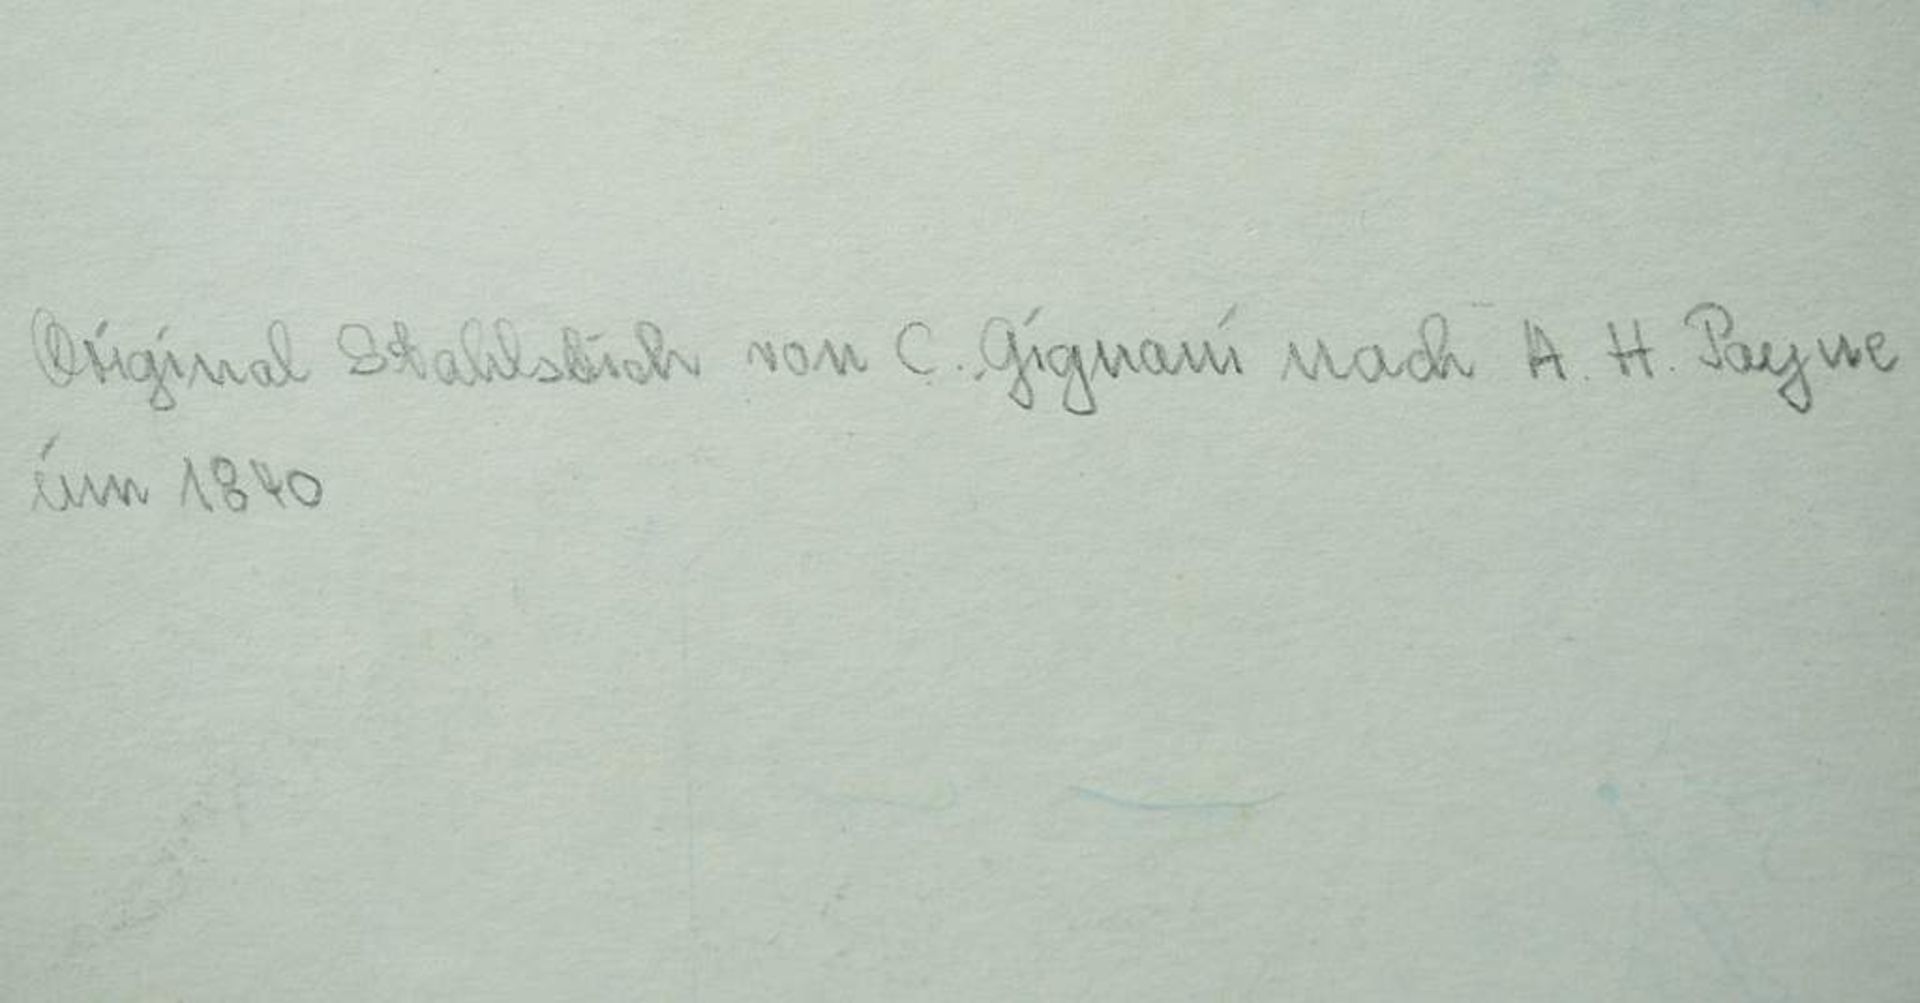 Original Stahlstich von C. Gignani nach A. H. Payne
um 1840